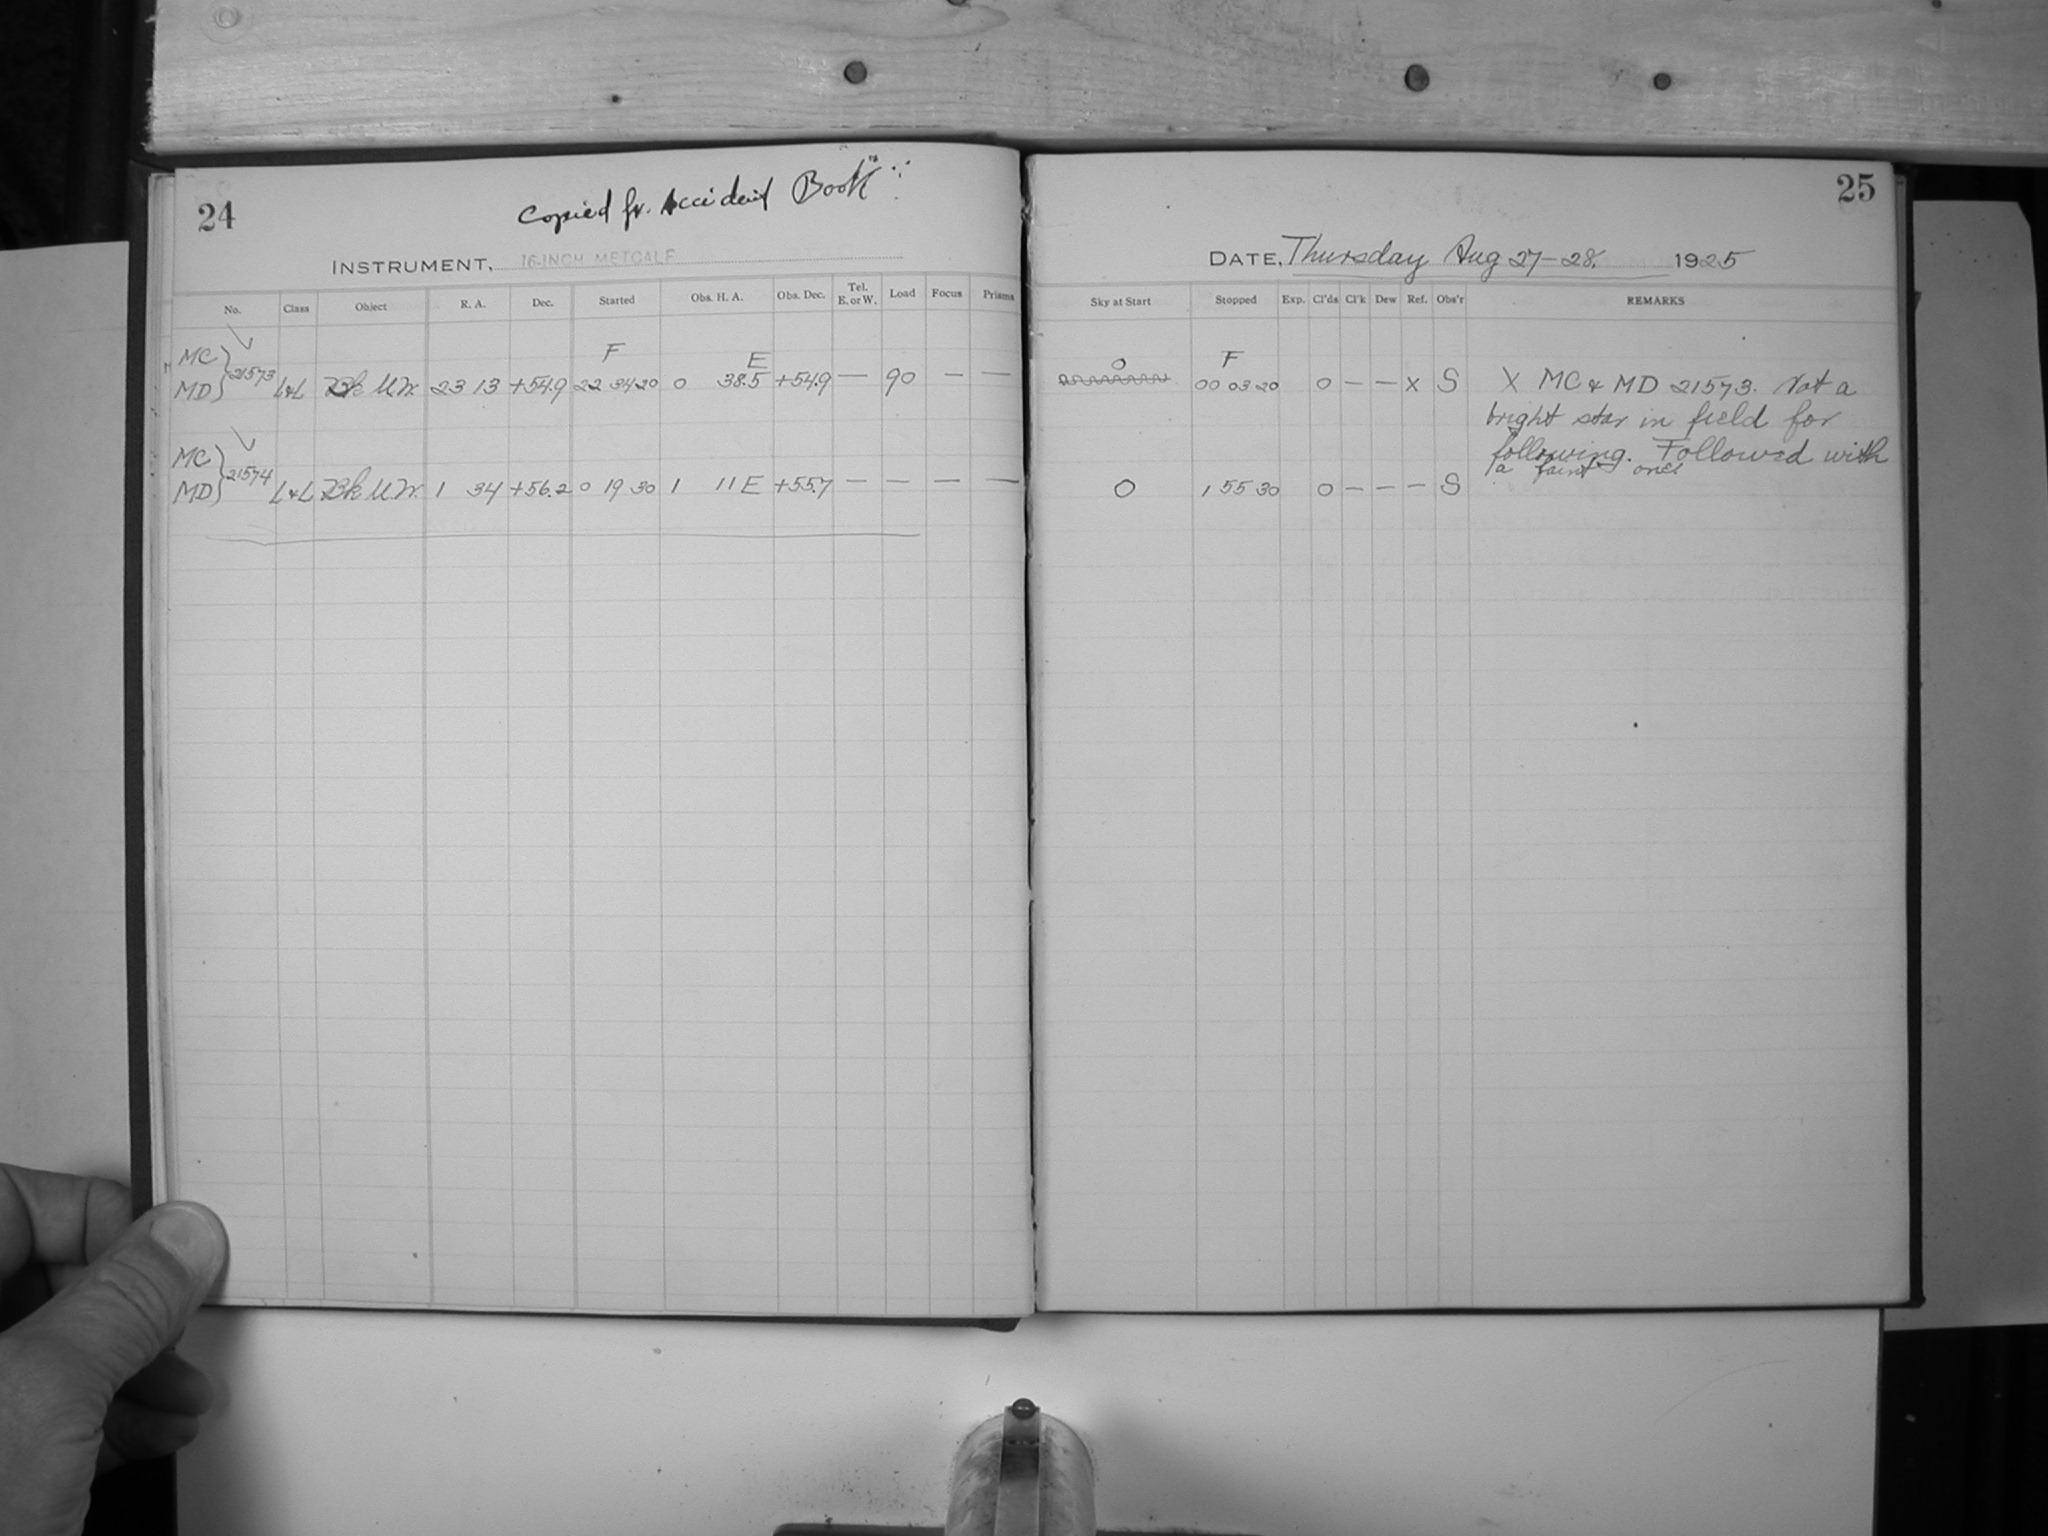 24
Copied fr. Accident Book
INSTRUMENT, 16-INCH METCALF
No. Class Object R. A. Dec. Started Obs. H. A. Obs. Dec. Tel. E. or W. Load Focus Prisms
MC } F E
MD } 21573 L&L Bk U.W. 23 13 +54.9 22 34 20 0 38.5 +54.9 — 90 — —
MC }
MD } 21574 L&L Bk U.W. 1 34 +56.2 0 19 30 1 11 E +55.7 — — — —
25
DATE, Thursday Aug 27-28. 1925
Sky at Start Stopped Exp. Cl'ds Cl'k Dew Ref. Obs'r REMARKS
0 F
00 03 20 0 — — X S X MC & MD 21573. Not a
bright star in field for
following. Followed with
a faint one
0 1 55 30 0 — — — S